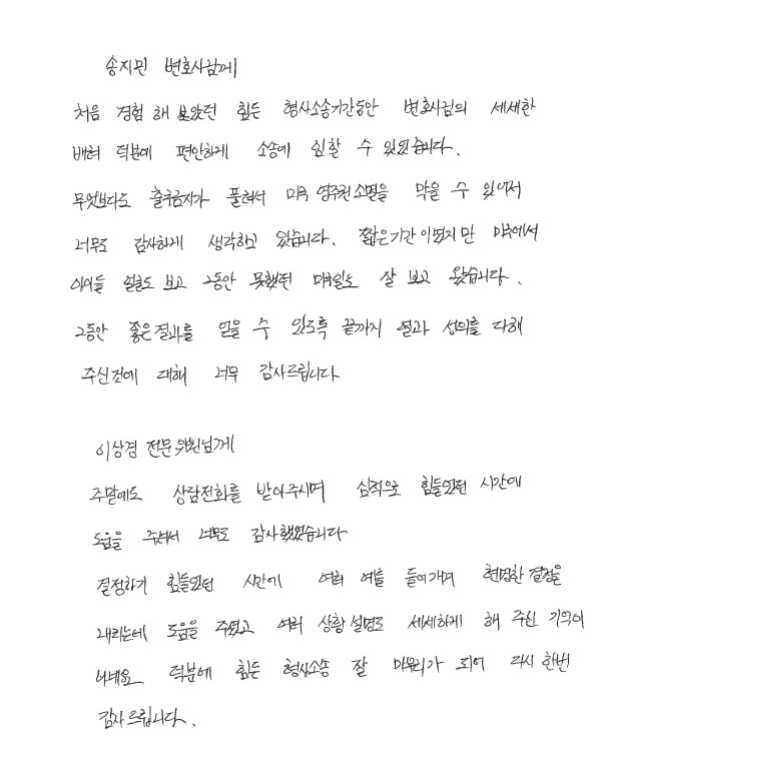 송지민 변호사님께
처음 경험 해 보았던 힘든 형사소송기간동안 변호사님의 세세한
배려 덕분에 편안하게 소송에 임할 수 있었습니다.
무엇보다도 출국금지가 풀려서 미국 영주권 소멸을 막을 수 있어서
너무도 감사하게 생각하고 있습니다. 짧은기간이었지만 미국에서
아이들 얼굴도 보고 그동안 못했던 미국일도 잘 보고 왔습니다.
그동안 좋은결과를 얻을 수 있도록 끝까지 성의를 다해
주신것에 대해 너무 감사드립니다
이상경 전문위원님께
주말에도 상담전화를 받아주시며 심적으로 힘들었던 시간에
도움을 주셔서 너무도 감사했었습니다
결정하기 힘들었던 시간에 여러 예를 들어가며 현명한 결정을
내리는데 도움을 주셨고 여러 상황 설명도 세세하게 해 주신 기억이
나네요 덕분에 힘든 형사소송 잘 마무리가 되어 다시 한번
감사드립니다.